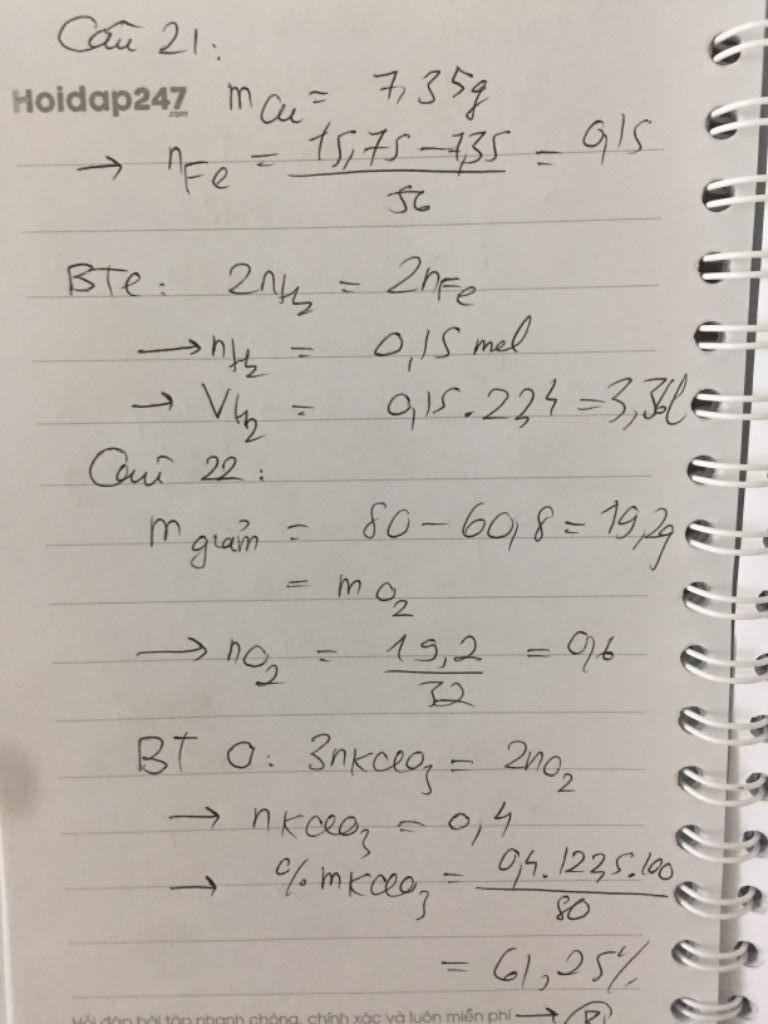 Câu 21:
Hoidap247.com
mCu = 7,35g
→ nFe = (15,75 - 7,35)/56 = 0,15
BTe: 2nH₂ = 2nFe
→ nH₂ = 0,15 mol
→ VH₂ = 0,15.22,4 = 3,36l
Câu 22:
m giảm = 80 - 60,8 = 19,2g
= mO₂
→ nO₂ = 19,2/32 = 0,6
BT O: 3nKClO₃ = 2nO₂
→ nKClO₃ = 0,4
→ %mKClO₃ = 0,4.122,5.100/80
= 61,25%
Hỏi đáp bài tập nhanh chóng, chính xác và luôn miễn phí → B